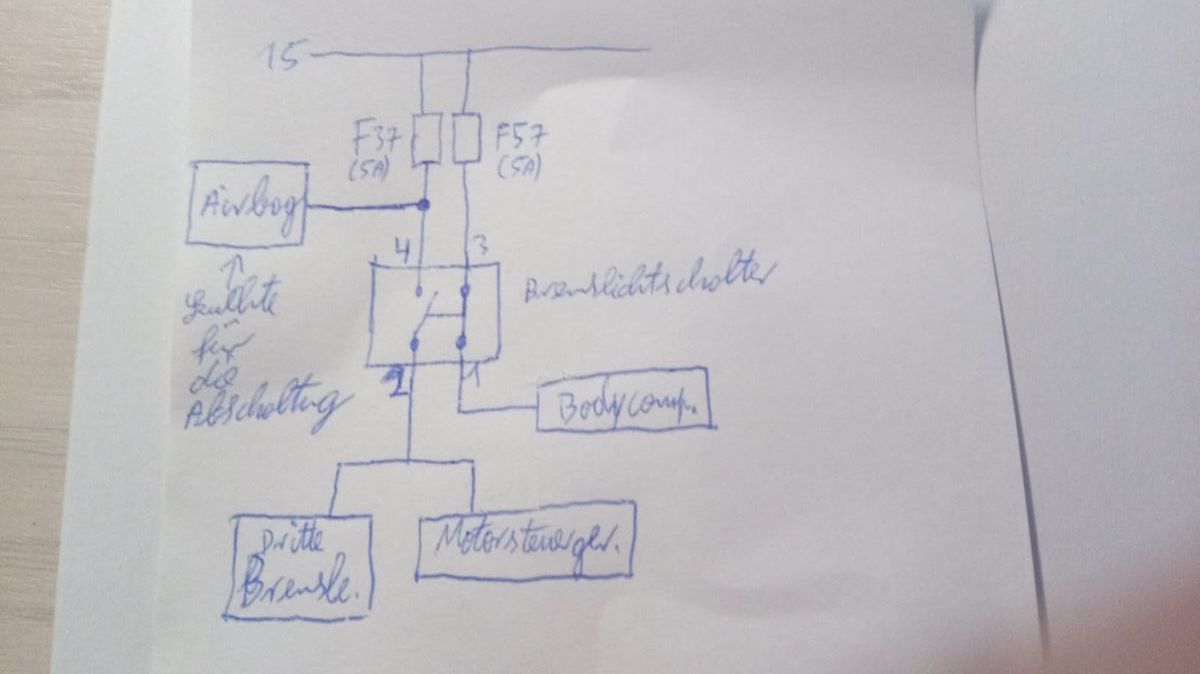 15
F37
(5A)
F57
(5A)
Airbag
4
3
Bremslichtschalter
Leuchte
für
die
Abschaltung
2
1
Bodycomp.
Dritte
Bremsle.
Motorsteuerger.